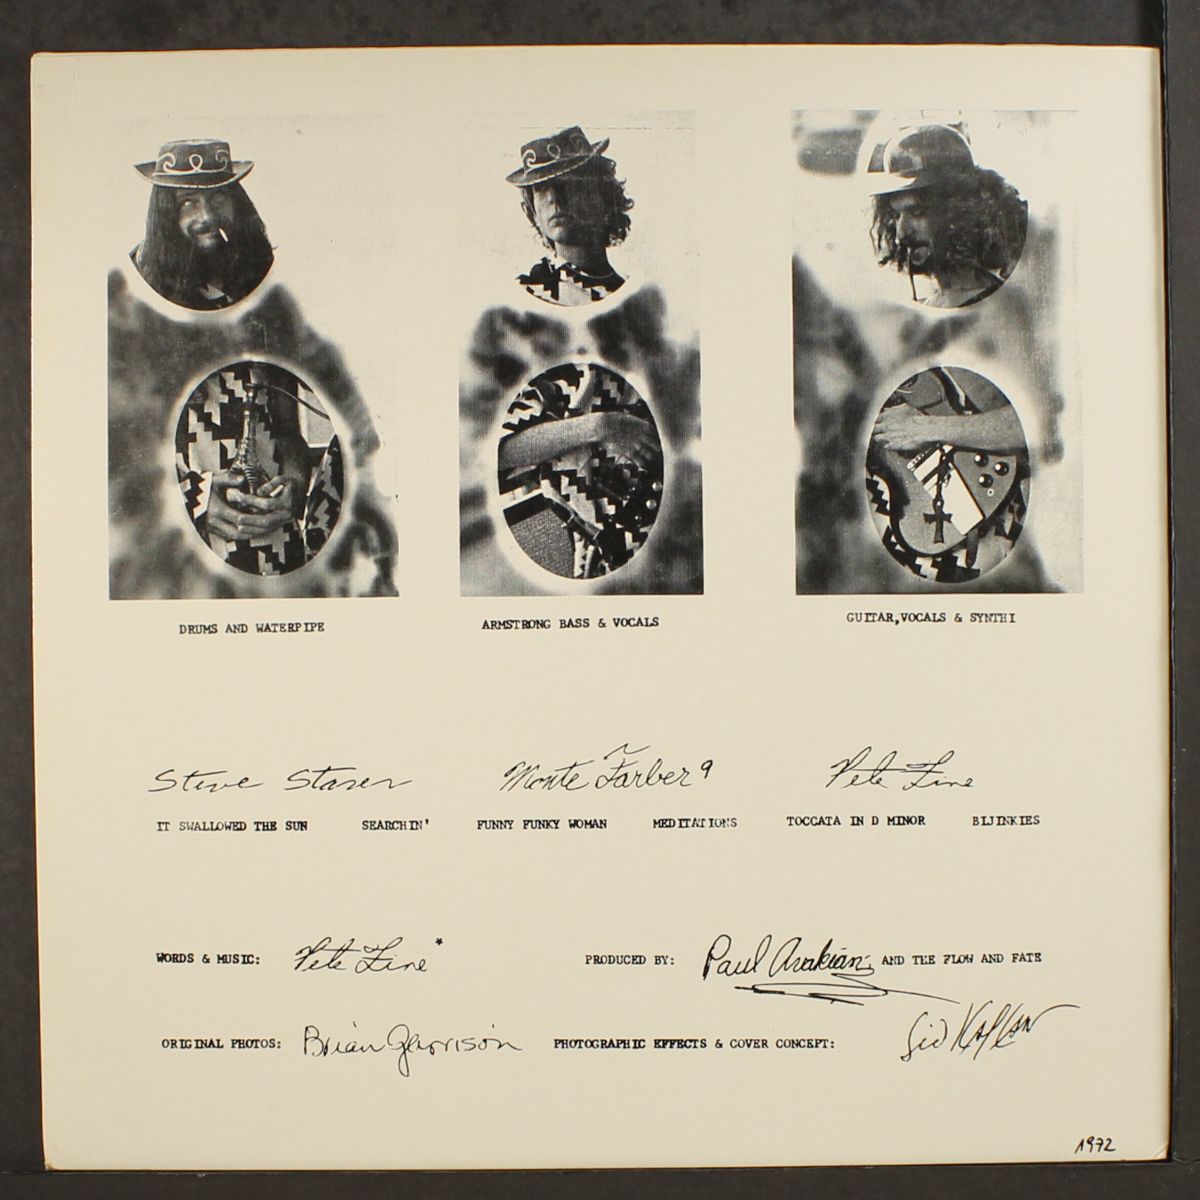 DRUMS AND WATERPIPE ARMSTRONG BASS & VOCALS GUITAR,VOCALS & SYNTHI
Steve Starer Monte Farber 9 Pete Fine
IT SWALLOWED THE SUN SEARCHIN' FUNNY FUNKY WOMAN MEDITATIONS TOCCATA IN D MINOR BIJINKIES
WORDS & MUSIC: Pete Fine* PRODUCED BY: Paul Arakian, AND THE FLOW AND FATE
ORIGINAL PHOTOS: Brian Garrison PHOTOGRAPHIC EFFECTS & COVER CONCEPT: Sid Kaplan
1972